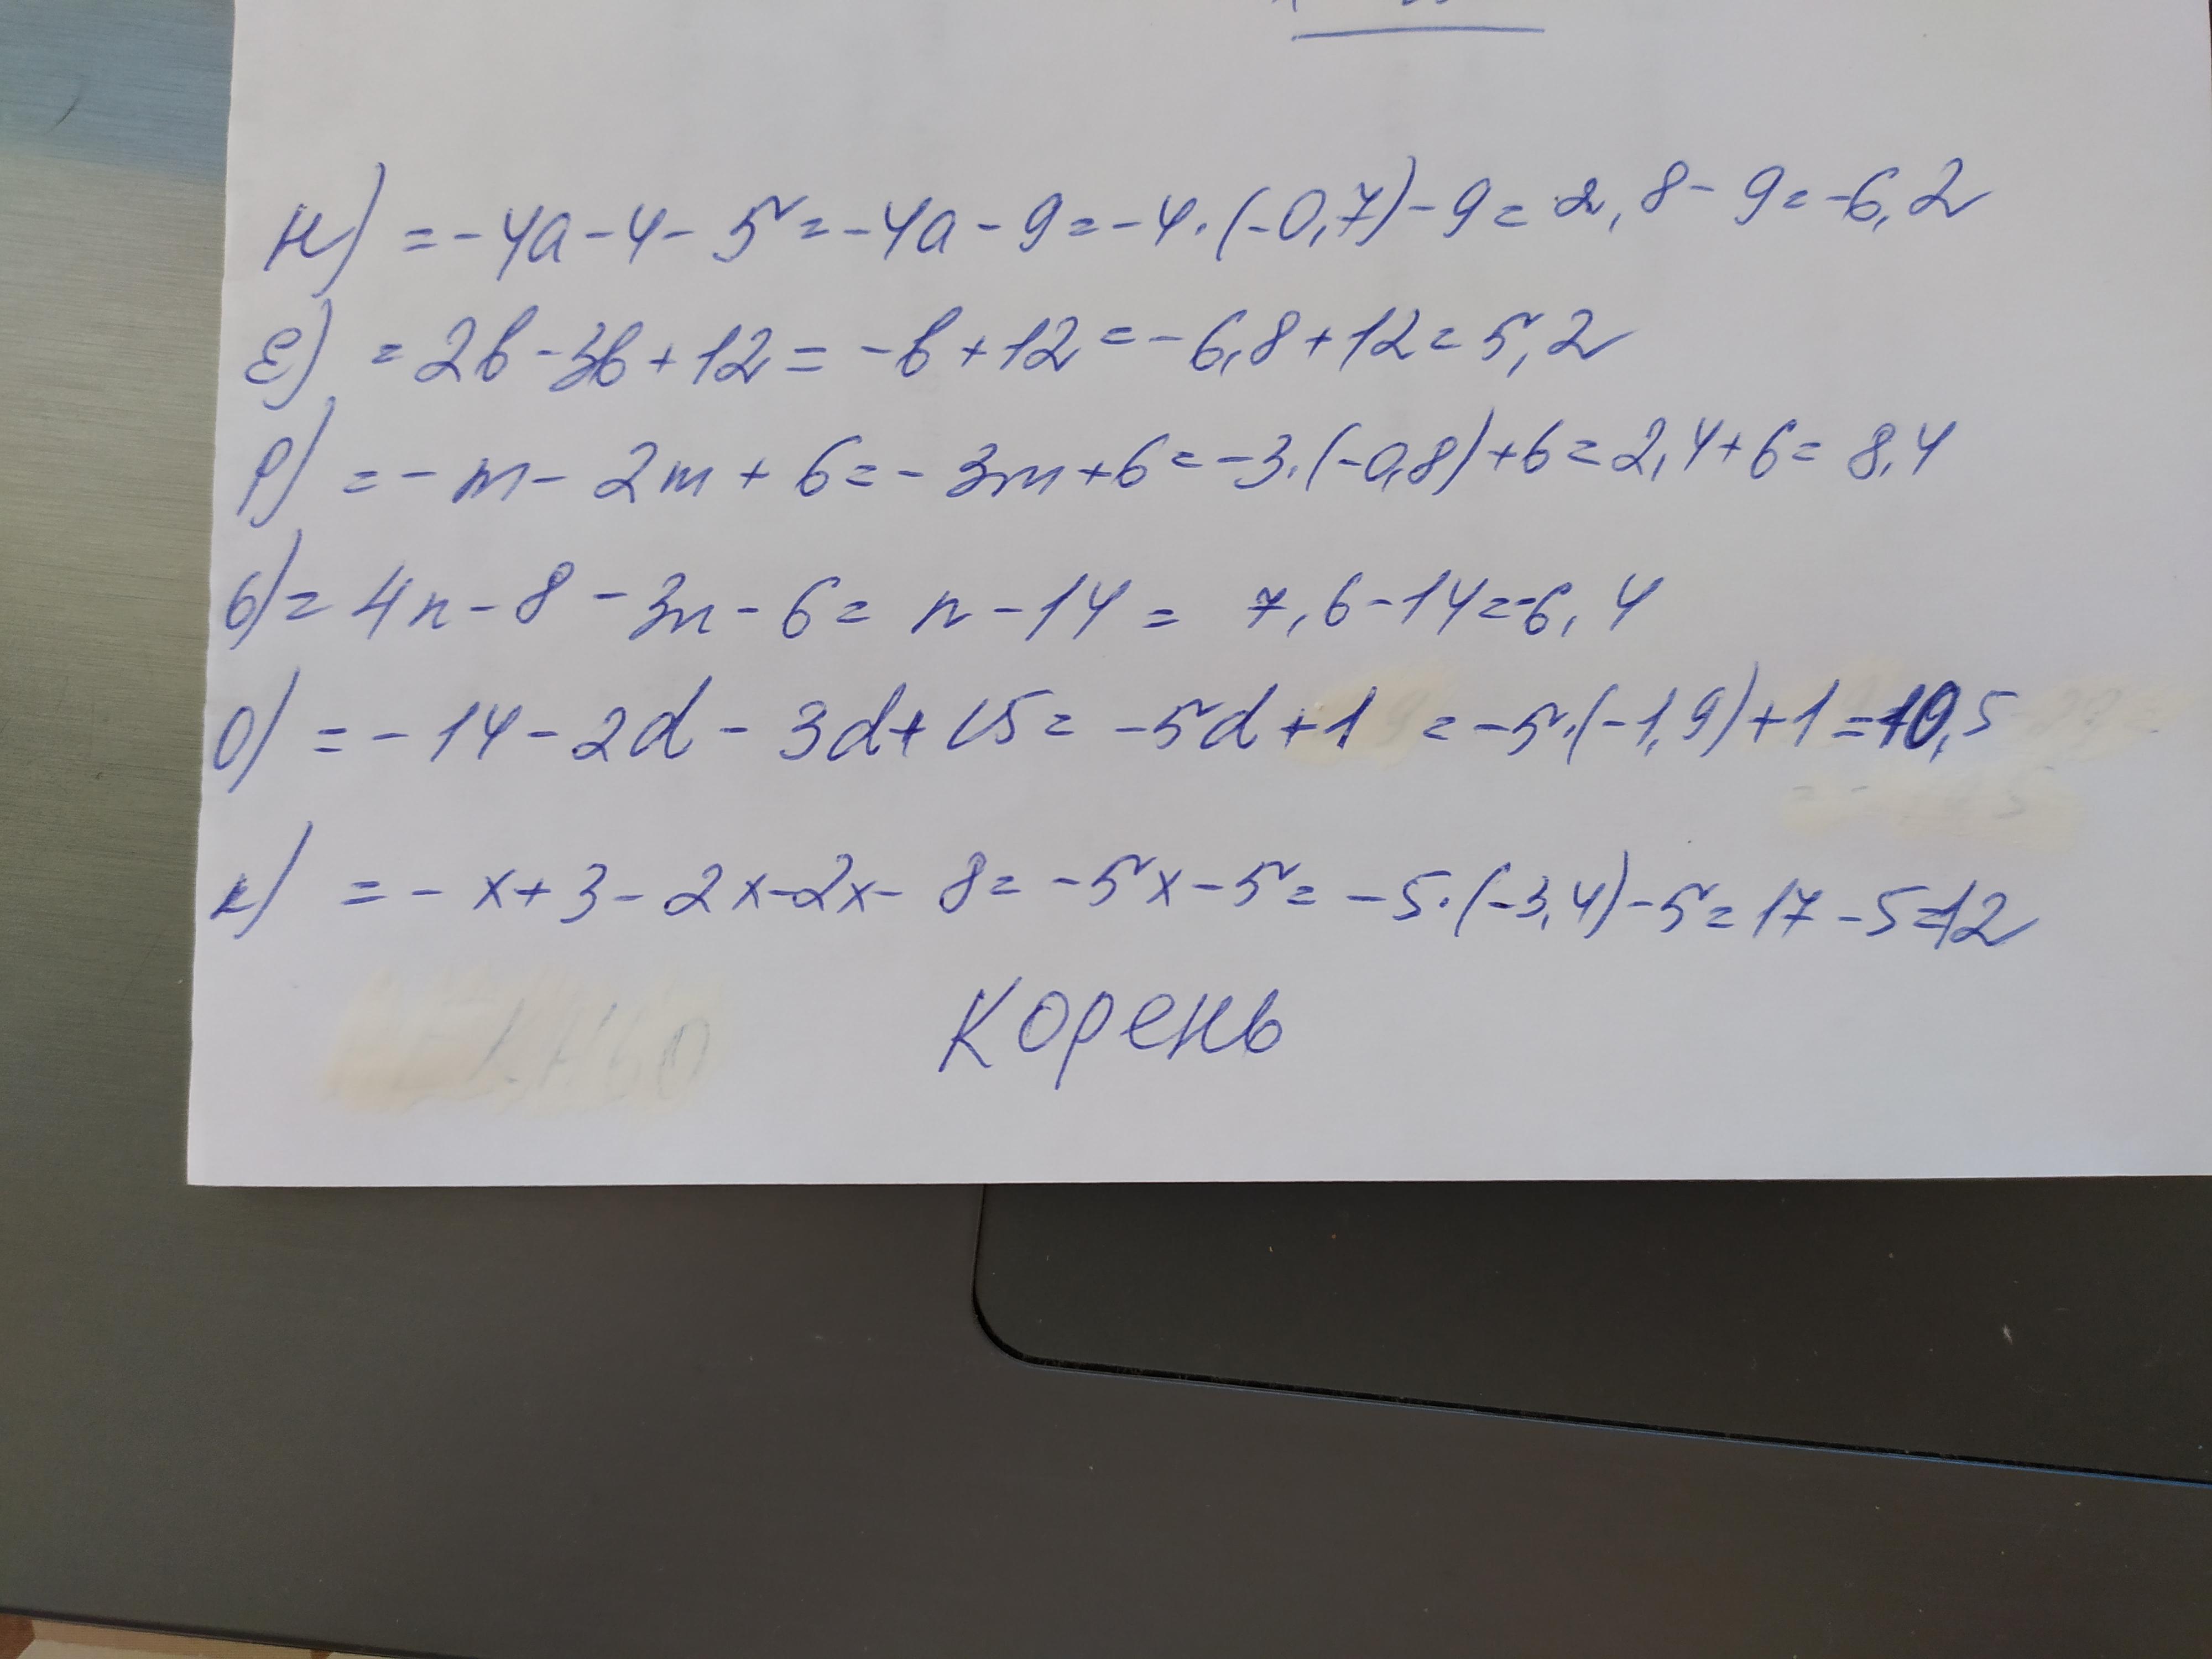 н) = -4a - 4 - 5 = -4a - 9 = -4·(-0,7) - 9 = 2,8 - 9 = -6,2
Е) = 2b - 3b + 12 = -b + 12 = -6,8 + 12 = 5,2
р) = -m - 2m + 6 = -3m + 6 = -3·(-0,8) + 6 = 2,4 + 6 = 8,4
ь) = 4n - 8 - 3n - 6 = n - 14 = 7,6 - 14 = -6,4
о) = -14 - 2d - 3d + 15 = -5d + 1 = -5·(-1,9) + 1 = 10,5
к) = -x + 3 - 2x - 2x - 8 = -5x - 5 = -5·(-3,4) - 5 = 17 - 5 = 12
Корень